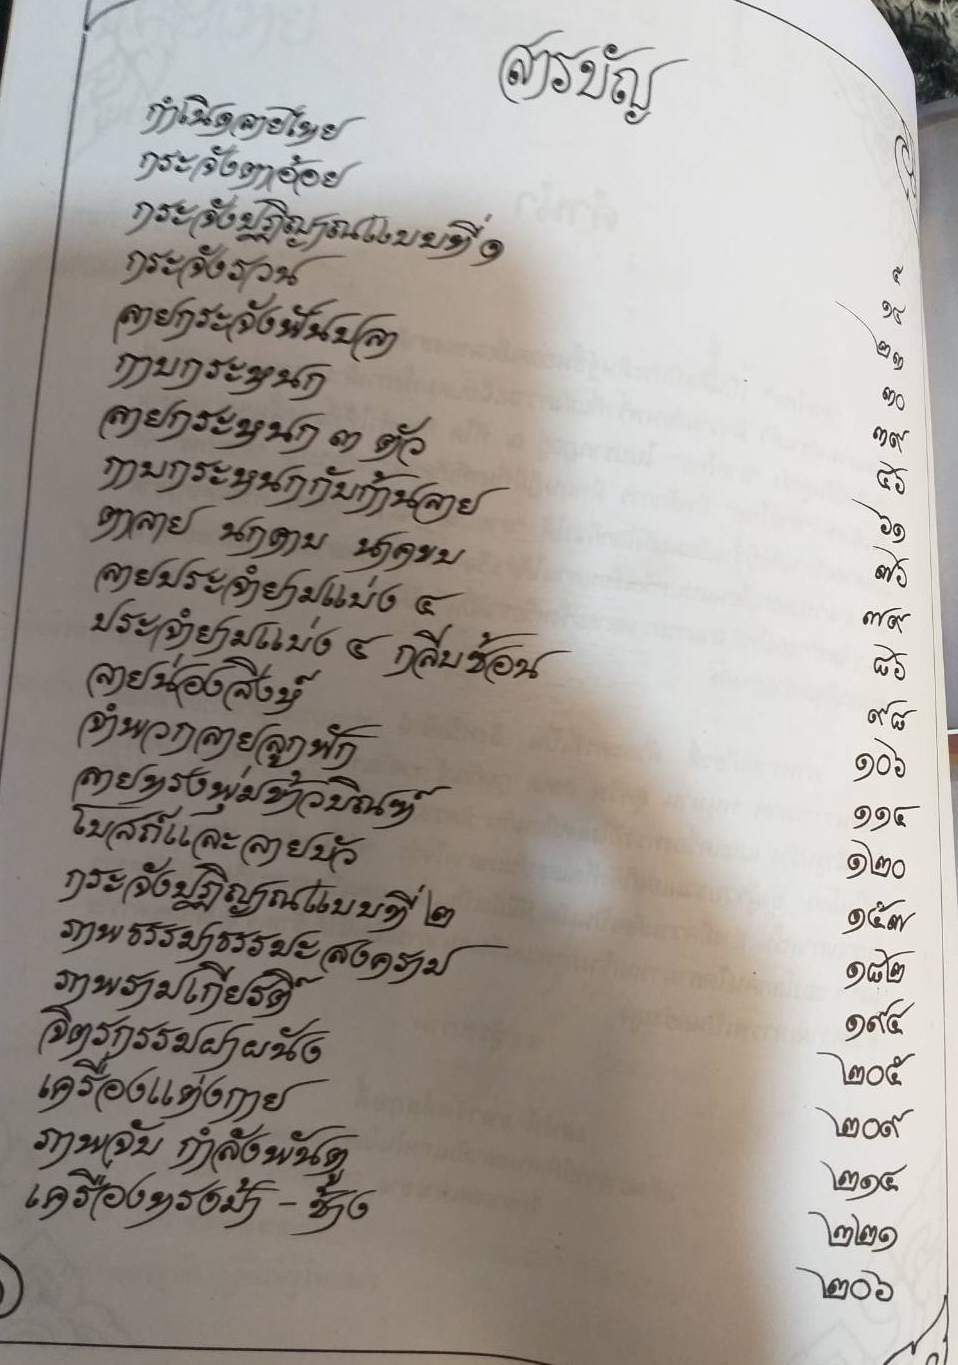 สารบัญ
กำเนิดลายไทย ๕
กระจังตาอ้อย ๑๔
กระจังปฏิญาณแบบที่ ๑ ๒๓
กระจังรวน ๓๐
ลายกระจังฟันปลา ๓๙
กาบกระหนก ๕๖
ลายกระหนก ๓ ตัว ๖๑
กาบกระหนกกับก้านลาย ๗๖
ตาลาย นกคาบ นาคขบ ๗๙
ลายประจำยามแบ่ง ๔ ๘๖
ประจำยามแบ่ง ๔ กลีบซ้อน ๙๘
ลายน่องสิงห์ ๑๐๖
จำพวกลายลูกฟัก ๑๑๔
ลายทรงพุ่มข้าวบิณฑ์ ๑๒๐
โบสถ์และลายบัว ๑๕๗
กระจังปฏิญาณแบบที่ ๒ ๑๘๒
ภาพธรรมาธรรมะสงคราม ๑๙๔
ภาพรามเกียรติ์ ๒๐๕
จิตรกรรมฝาผนัง ๒๐๙
เครื่องแต่งกาย ๒๑๔
ภาพจับ กำลังพันตู ๒๒๑
เครื่องทรงม้า - ช้าง ๒๐๖